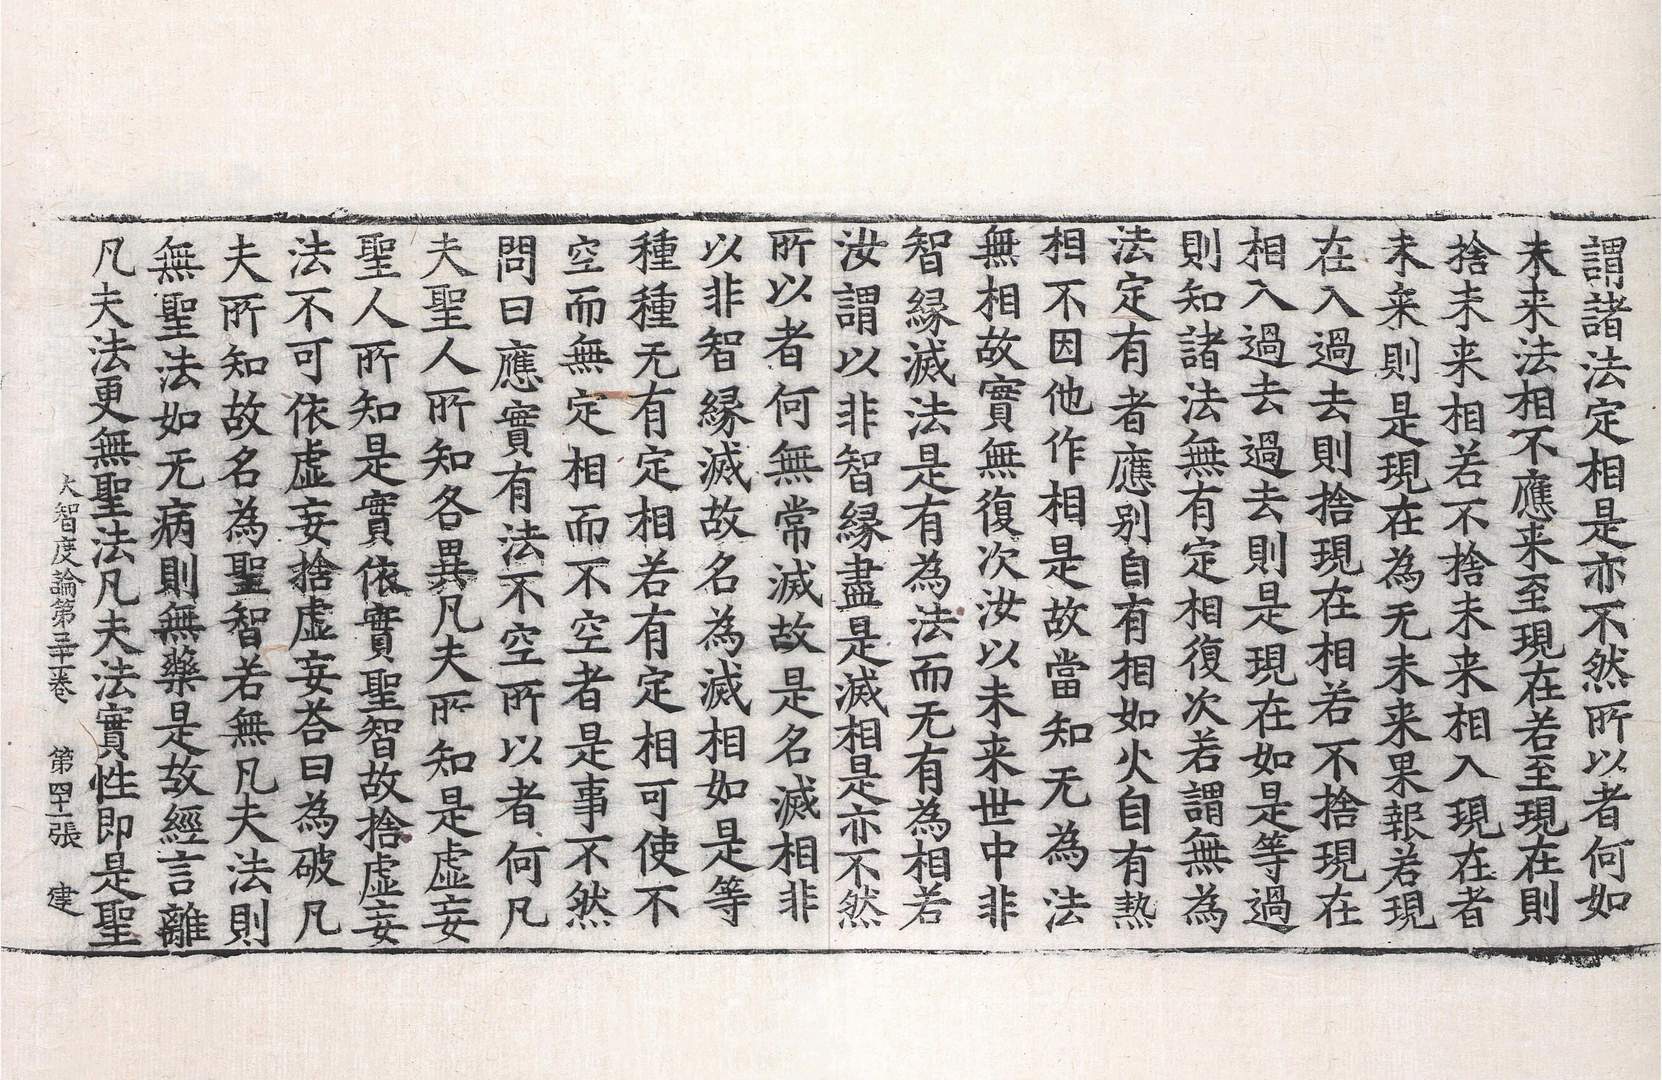 謂諸法定相是亦不然所以者何如
未来法相不應来至現在若至現在則
捨未来相若不捨未来相入現在者
未来則是現在為无未来果報若現
在入過去則捨現在相若不捨現在
相入過去過去則是現在如是等過
則知諸法無有定相復次若謂無為
法定有者應别自有相如火自有熱
相不因他作相是故當知无為法
無相故實無復次汝以未来世中非
智緣滅法是有為法而无有為相若
汝謂以非智緣盡是滅相是亦不然
所以者何無常滅故是名滅相非
以非智緣滅故名為滅相如是等
種種无有定相若有定相可使不
空而無定相而不空者是事不然
問曰應實有法不空所以者何凡
夫聖人所知各異凡夫所知是虛妄
聖人所知是實依實聖智故捨虛妄
法不可依虛妄捨虛妄荅曰為破凡
夫所知故名為聖智若無凡夫法則
無聖法如无病則無藥是故經言離
凡夫法更無聖法凡夫法實性即是聖
大智度論第三十一卷 第四十一張 建